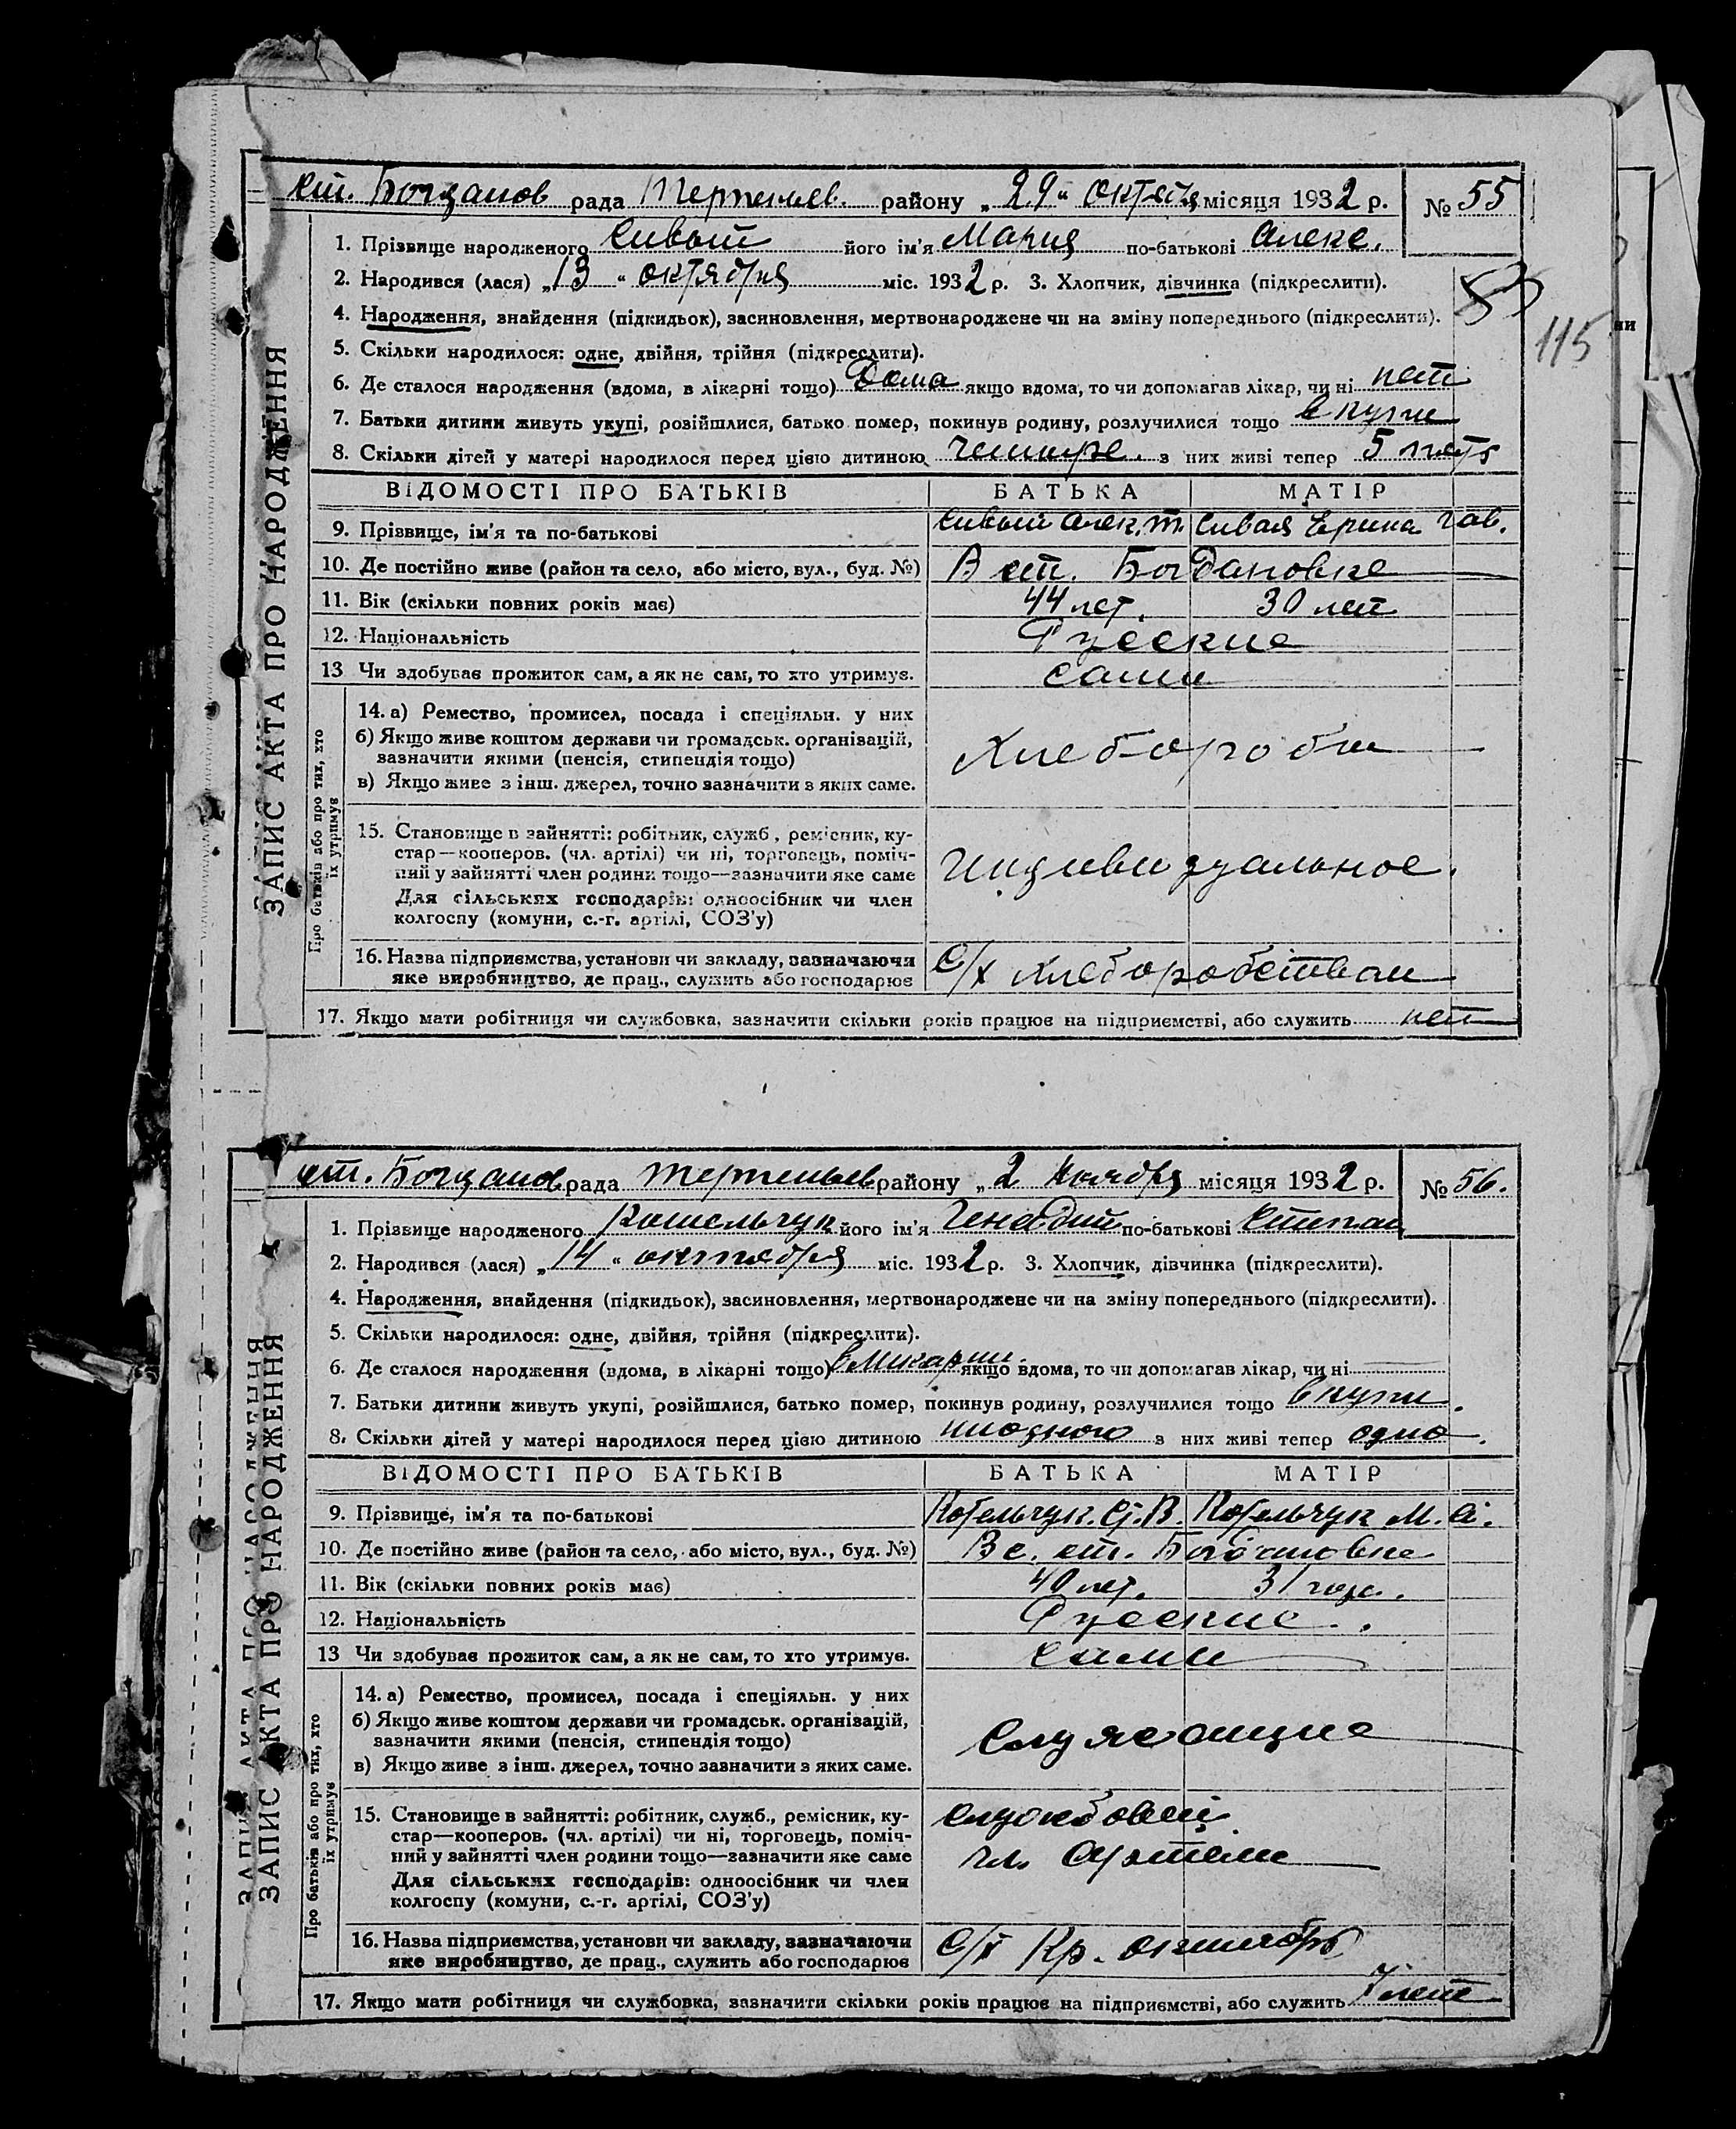 ст. Богданов рада Терпеньев. району „29“ октября місяця 1932 р. № 55
1. Прізвище народженого Сивый його ім'я Мария по-батькові Алекс.
2. Народився (лася) „13“ октября міс. 1932 р. 3. Хлопчик, дівчинка (підкреслити).
53
115
4. Народження, знайдення (підкидьок), засиновлення, мертвонароджене чи на зміну попереднього (підкреслити).
5. Скільки народилося: одне, двійня, трійня (підкреслити).
6. Де сталося народження (вдома, в лікарні тощо) Дома якщо вдома, то чи допомагав лікар, чи ні нет
7. Батьки дитини живуть укупі, розійшлися, батько помер, покинув родину, розлучилися тощо вкупи
8. Скільки дітей у матері народилося перед цією дитиною четыре. з них живі тепер 5 пять
ВІДОМОСТІ ПРО БАТЬКІВ БАТЬКА МАТІР
9. Прізвище, ім'я та по-батькові Сивый Алек. Т. Сивая Ерина Гав.
10. Де постійно живе (район та село, або місто, вул., буд. №) В ст. Богдановке
11. Вік (скільки повних років має) 44 лет. 30 лет
12. Національність Руские
13 Чи здобуває прожиток сам, а як не сам, то хто утримує. сами
14. а) Ремество, промисел, посада і спеціяльн. у них
б) Якщо живе коштом держави чи громадськ. організацій,
зазначити якими (пенсія, стипендія тощо)
Хлебороби
в) Якщо живе з інш. джерел, точно зазначити з яких саме.
15. Становище в зайнятті: робітник, служб., ремісник, ку-
стар—кооперов. (чл. артілі) чи ні, торговець, поміч-
ний у зайнятті член родини тощо—зазначити яке саме
Индивидуальное.
Для сільських господарів: одноосібник чи член
колгоспу (комуни, с.-г. артілі, СОЗ'у)
16. Назва підприємства, установи чи закладу, зазначаючи
яке виробництво, де прац., служить або господарює
С/х хлеборобством
17. Якщо мати робітниця чи службовка, зазначити скільки років працює на підприємстві, або служить нет
ЗАПИС АКТА ПРО НАРОДЖЕННЯ
Про батьків або про тих, хто
їх утримує
ст. Богданов рада Терпеньев району „2 Ноября місяця 1932 р. № 56.
1. Прізвище народженого Котельчук його ім'я Генадий по-батькові Степан
2. Народився (лася) „14“ октября міс. 1932 р. 3. Хлопчик, дівчинка (підкреслити).
4. Народження, знайдення (підкидьок), засиновлення, мертвонароджене чи на зміну попереднього (підкреслити).
5. Скільки народилося: одне, двійня, трійня (підкреслити).
6. Де сталося народження (вдома, в лікарні тощо) якщо вдома, то чи допомагав лікар, чи ні
7. Батьки дитини живуть укупі, розійшлися, батько помер, покинув родину, розлучилися тощо вкупи.
8. Скільки дітей у матері народилося перед цією дитиною ниодного з них живі тепер одно.
ВІДОМОСТІ ПРО БАТЬКІВ БАТЬКА МАТІР
9. Прізвище, ім'я та по-батькові Котельчук. Ст. В. Котельчук М. А.
10. Де постійно живе (район та село, або місто, вул., буд. №) В с. ст. Богдановке
11. Вік (скільки повних років має) 40 лет. 31 года.
12. Національність Руские.
13 Чи здобуває прожиток сам, а як не сам, то хто утримує. сами
14. а) Ремество, промисел, посада і спеціяльн. у них
б) Якщо живе коштом держави чи громадськ. організацій,
зазначити якими (пенсія, стипендія тощо)
Служащие
в) Якщо живе з інш. джерел, точно зазначити з яких саме.
15. Становище в зайнятті: робітник, служб., ремісник, ку-
стар—кооперов. (чл. артілі) чи ні, торговець, поміч-
ний у зайнятті член родини тощо—зазначити яке саме
службовец
чл. Артели
Для сільських господарів: одноосібник чи член
колгоспу (комуни, с.-г. артілі, СОЗ'у)
16. Назва підприємства, установи чи закладу, зазначаючи
яке виробництво, де прац., служить або господарює
С/х Кр. октябрь
17. Якщо мати робітниця чи службовка, зазначити скільки років працює на підприємстві, або служить 7 лет
ЗАПИС АКТА ПРО НАРОДЖЕННЯ
Про батьків або про тих, хто
їх утримує